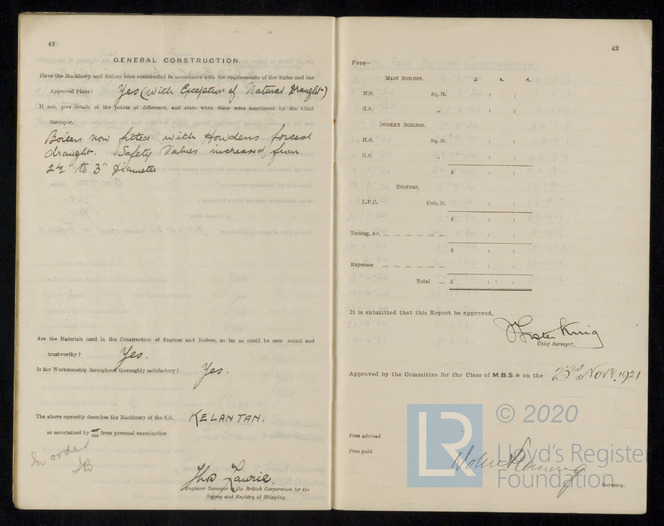 42
GENERAL CONSTRUCTION.
Have the Machinery and Boilers been constructed in accordance with the requirements of the Rules and the
Approved Plans? Yes (with Exception of Natural Draught)
If not, give details of the points of difference, and state when these were sanctioned by the Chief
Surveyor.
Boilers now fitted with Howdens forced
draught. Safety Valves increased from
2½ to 3" Diameter
Are the Materials used in the Construction of Engines and Boilers, so far as could be seen sound and
trustworthy? Yes.
Is the Workmanship throughout thoroughly satisfactory? Yes.
The above correctly describes the Machinery of the S.S. KELANTAN.
as ascertained by me from personal examination
In order
JB
Thos Lawrie.
Engineer Surveyor to the British Corporation for the
Survey and Registry of Shipping.
43
Fees—
MAIN BOILERS. £ s. d.
H.S. Sq. ft. : :
G.S. „ : :
DONKEY BOILERS.
H.S. Sq. ft. : :
G.S. „ : :
£ : :
ENGINES.
L.P.C. Cub. ft. : :
£ : :
Testing, &c. ... ... ... ... ... : :
£ : :
Expenses ... ... ... ... ... : :
Total ... £ : :
It is submitted that this Report be approved,
J Foster King
Chief Surveyor.
Approved by the Committee for the Class of M.B.S.* on the 23rd Novr. 1921
Fees advised
Fees paid
Secretary.
LR
© 2020
Lloyd's Register
Foundation